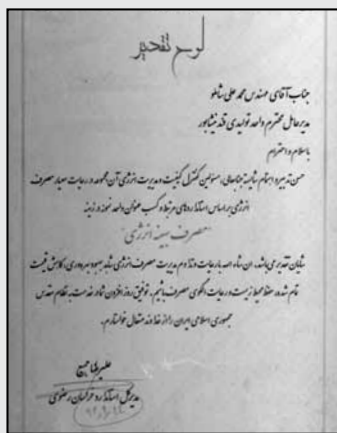 لوح تقدیر
جناب آقای مهندس محمد علی شاملو
مدیر عامل محترم واحد تولیدی قند نیشابور
با سلام و احترام
حسن تدبیر و اهتمام شایسته جنابعالی، مسئولین کنترل کیفیت و مدیریت انرژی آن مجموعه در رعایت معیار مصرف
انرژی بر اساس استانداردهای مرتبط و کسب عنوان واحد نمونه در زمینه
"مصرف بهینه انرژی"
شایان تقدیر می‌باشد. ان شاء الله با رعایت و تداوم مدیریت مصرف انرژی شاهد بهبود بهره‌وری، کاهش قیمت
تمام شده، حفظ محیط زیست و رعایت الگوی مصرف باشیم. توفیق روز افزون شما در خدمت به نظام مقدس
جمهوری اسلامی ایران را از خداوند متعال خواستارم.
علیرضا
مدیر کل استاندارد خراسان رضوی